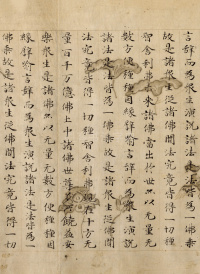 言辭而為衆生演說諸法是法皆為一佛乘
故是諸衆生從諸佛聞法究竟皆得一切種
智舍利弗未來諸佛當出於世亦以無量無
數方便種種因緣譬喻言辭而為衆生演說
諸法是法皆為一佛乘故是諸衆生從佛聞
法究竟皆得一切種智舍利弗現在十方無
量百千万億佛土中諸佛世尊多所饒益安
樂衆生是諸佛亦以無量無數方便種種因
緣譬喻言辭而為衆生演說諸法是法皆為一
佛乘故是諸衆生從佛聞法究竟皆得一切